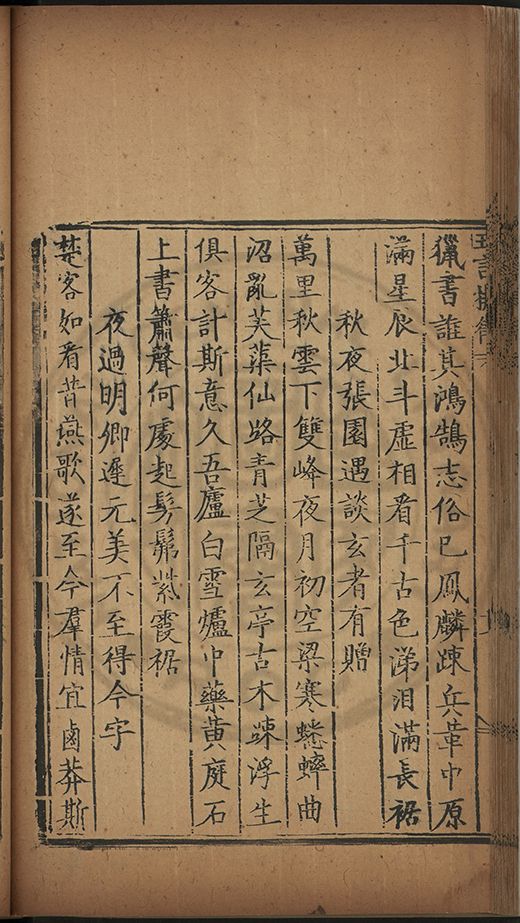 獵書誰其鴻鵠志俗已鳳麟踈兵革中原
滿星辰北斗虛相看千古色涕泪滿長裾
秋夜張園遇談玄者有贈
萬里秋雲下雙峰夜月初空梁寒蟋蟀曲
沼亂芙蕖仙路青芝隔玄亭古木踈浮生
俱客計斯意久吾廬白雪爐中藥黃庭石
上書簫聲何處起髣髴紫霞裾
夜過明卿遲元美不至得今字
楚客如看昔燕歌遂至今羣情宜鹵莽斯